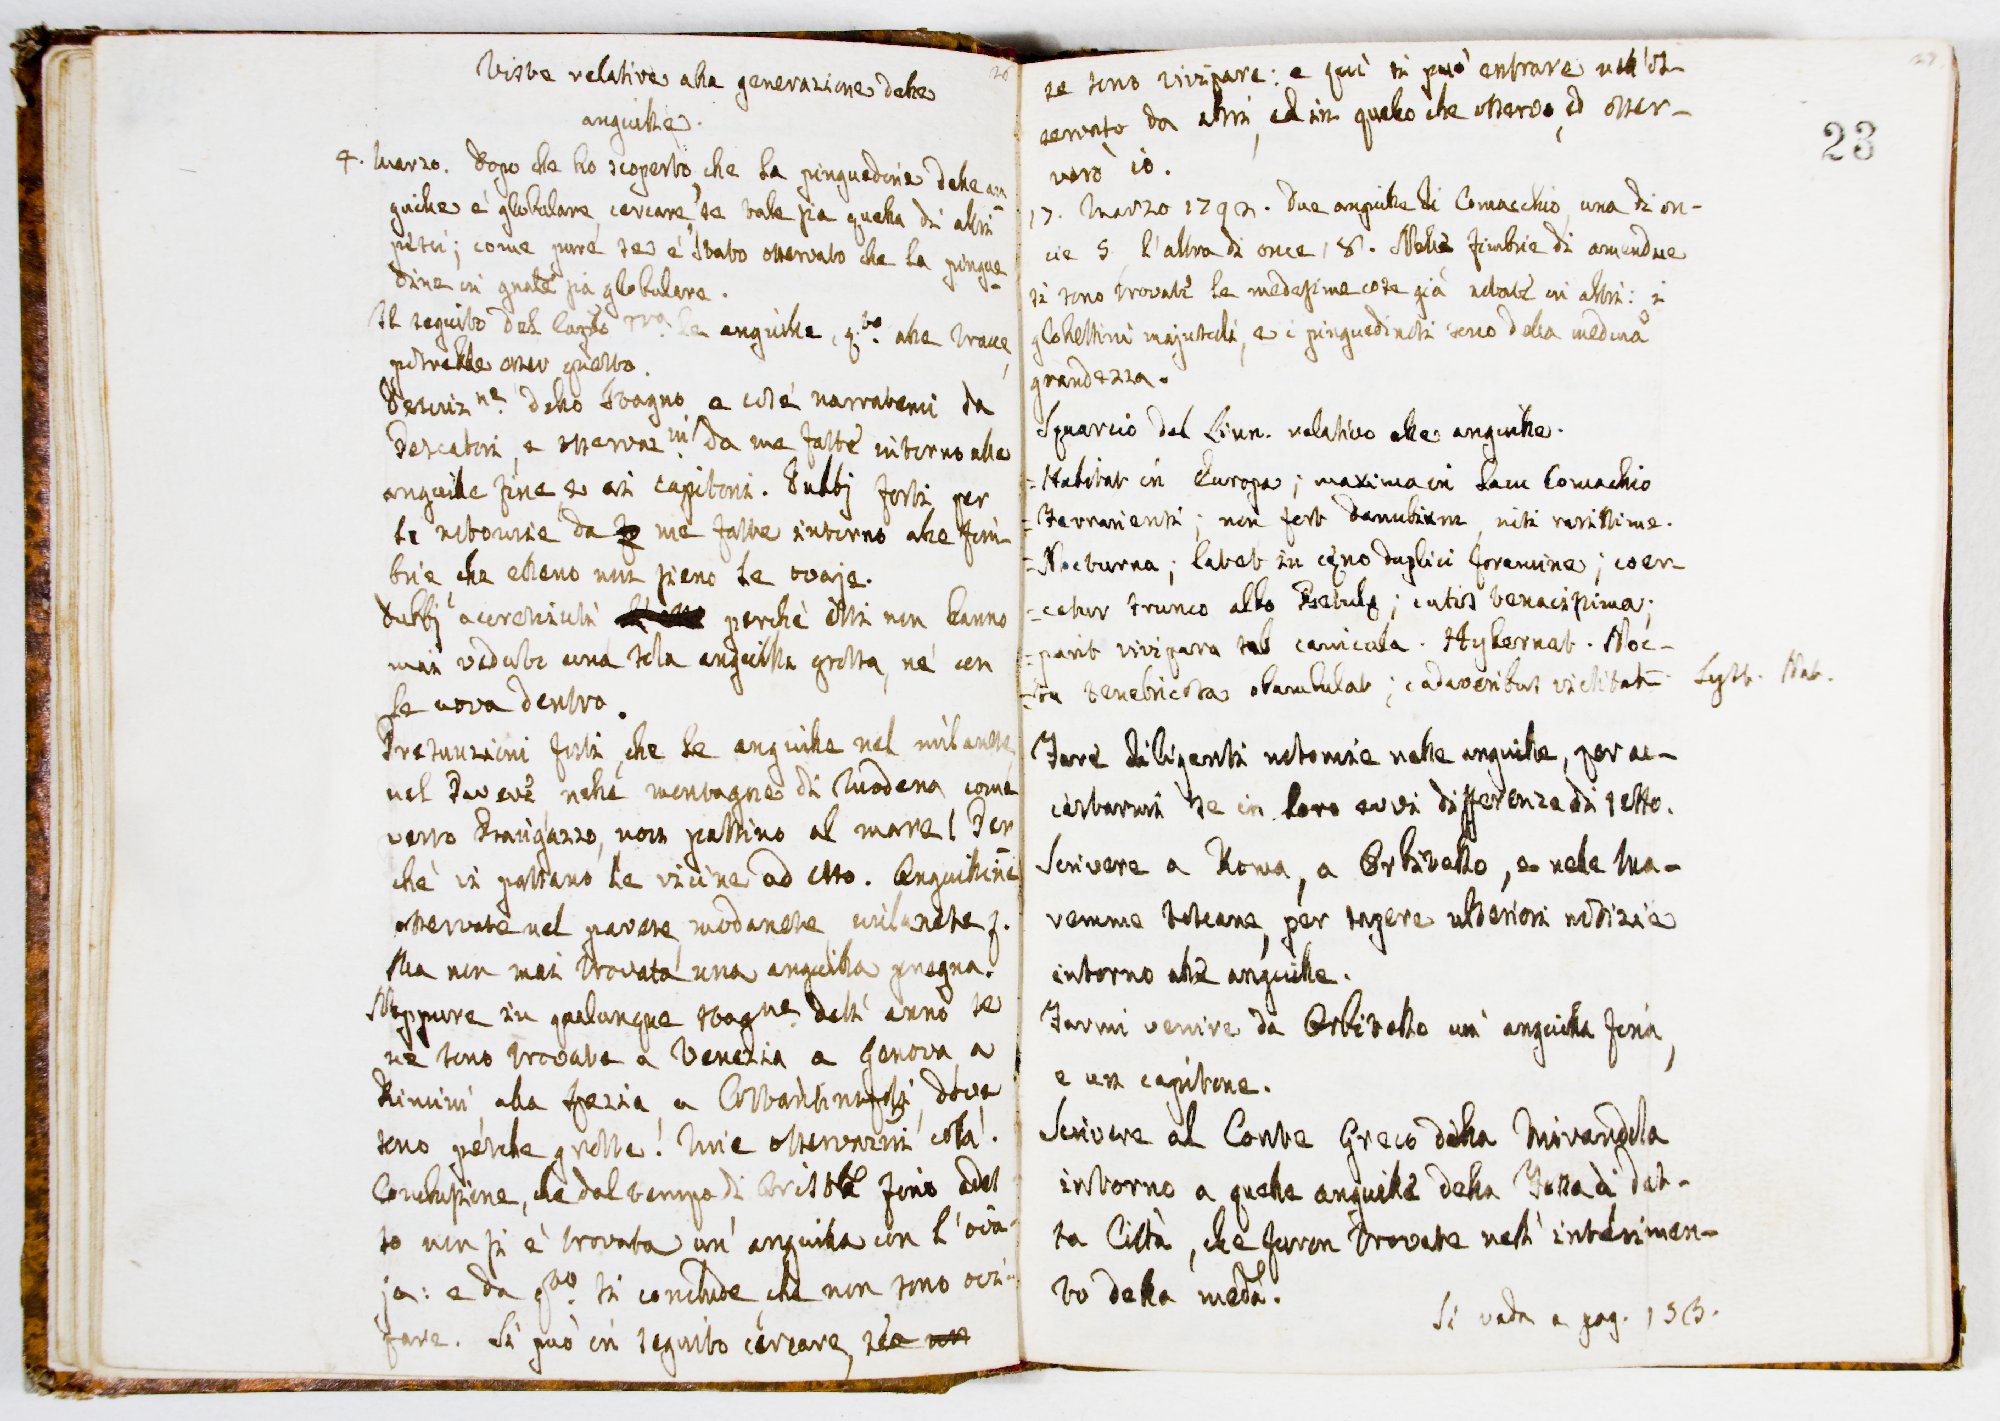 Viste relative alla generazione delle
anguille.
4. Marzo. Dopo che ho scoperto che la pinguedine delle an
guille è globulare, cercare se tale sia quella di altri
pesci; come pure se è stato osservato che la pingue
dine in gnãle sia globulare.
Il seguito del le anguille, q.to alle trace,
potrebbe esser questo.
Descriz.ne dello Stagno, e cose narratemi da
Pescatori, e osservaz.ni da me fatte intorno alle
anguille fine, e ai capitoni. Dubbj forti per
le notomie da me fatte intorno alle fim-
brie che elleno non sieno le ovaje.
Dubbj accresciuti perchè essi non hanno
mai veduto una sola anguilla grossa, nè con
le uova dentro.
Presunzioni forti, che le anguille nel milanese
nel Pavese nelle montagne di Modena come
verso Frasigazzo, non passino al mare! Per
chè vi passano le vicine ad esso. Anguilline
osservate nel pavese modanese milanese j.
Ma non mai trovata una anguilla pregna.
Neppure in qualunque stag.ne dell' anno se
ne sono trovate a Venezia a Genova a
Rimini, alla Spezia, a Costantinopoli, dove
sono pesche grosse! Mie osservazni colà.
Conclusione, che dal tempo di Aristle fino ades
so non si è trovata un' anguilla con l' ova-
ja: e da q.to si conclude, che non sono ovi-
pare. Si può in seguito cercare, se non
23
se sono vivipare: e quì si può entrare nell' os-
servato da altri, ed in quello che osservo, ed osser-
verò io.
17. Marzo 1792. Due anguille di Comacchio, una di on-
cie 5 l'altra di once 18. Nelle fimbrie di amendue
si sono trovate le medesime cose già notate in altri: i
globettini majuscoli, e i pinguedinosi sono della medma
grandezza.
Squarcio del Linn. relativo alle anguille.
= Habitat in Europa; maxima in lacu Comachio
= Ferrariensi; non fert Danubium, nisi rarissime.
= Nocturna; latet in cœno duplici foramine; coer-
= cetur trunco albo Betulæ; cutis tenacissima;
= parit vivipara sub canicula. Hybernat. Noc-
= tu tenebricosa obambulat; cadaveribus victitat= Syst. Nat.
Fare diligenti notomie nelle anguille, per ac-
certarmi se in loro evvi differenza di sesso.
Scrivere a Roma, a Orbitello, e nelle Ma-
remme toscane, per sapere ulteriori notizie
intorno alle anguille.
Farmi venire da Orbitello un' anguilla fina,
e un capitone.
Scrivere al Conte Greco della Mirandola
intorno a quelle anguille della Fossa di det-
ta Città, che furon trovate nell' interimen-
to della medã.
Si veda a pag. 153.